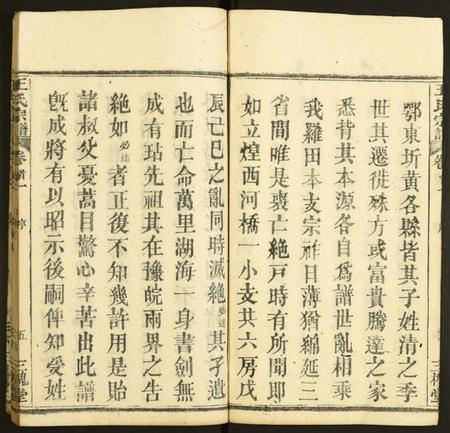 鄂東圻黃各縣皆其子姓清之季
世其遷徙殊方或富貴騰達之家
悉背其本源各自為譜世亂相乘
我羅田本支宗祚日薄猶綿延三
省間唯是喪亡絕戶時有所聞即
如立煌西河橋一小支共六房戊
辰己巳之亂同時滅絕必達其孑遺
也而亡命萬里湖海一身書劍無
成有玷先祖其在豫皖兩界之告
絕如必達者正復不知幾許用是貽
諸叔父憂蒿目驚心辛苦出此譜
既成將有以昭示後嗣俾知受姓
王氏宗譜
卷首一
序
五
三槐堂
王氏宗譜
卷首
三槐堂